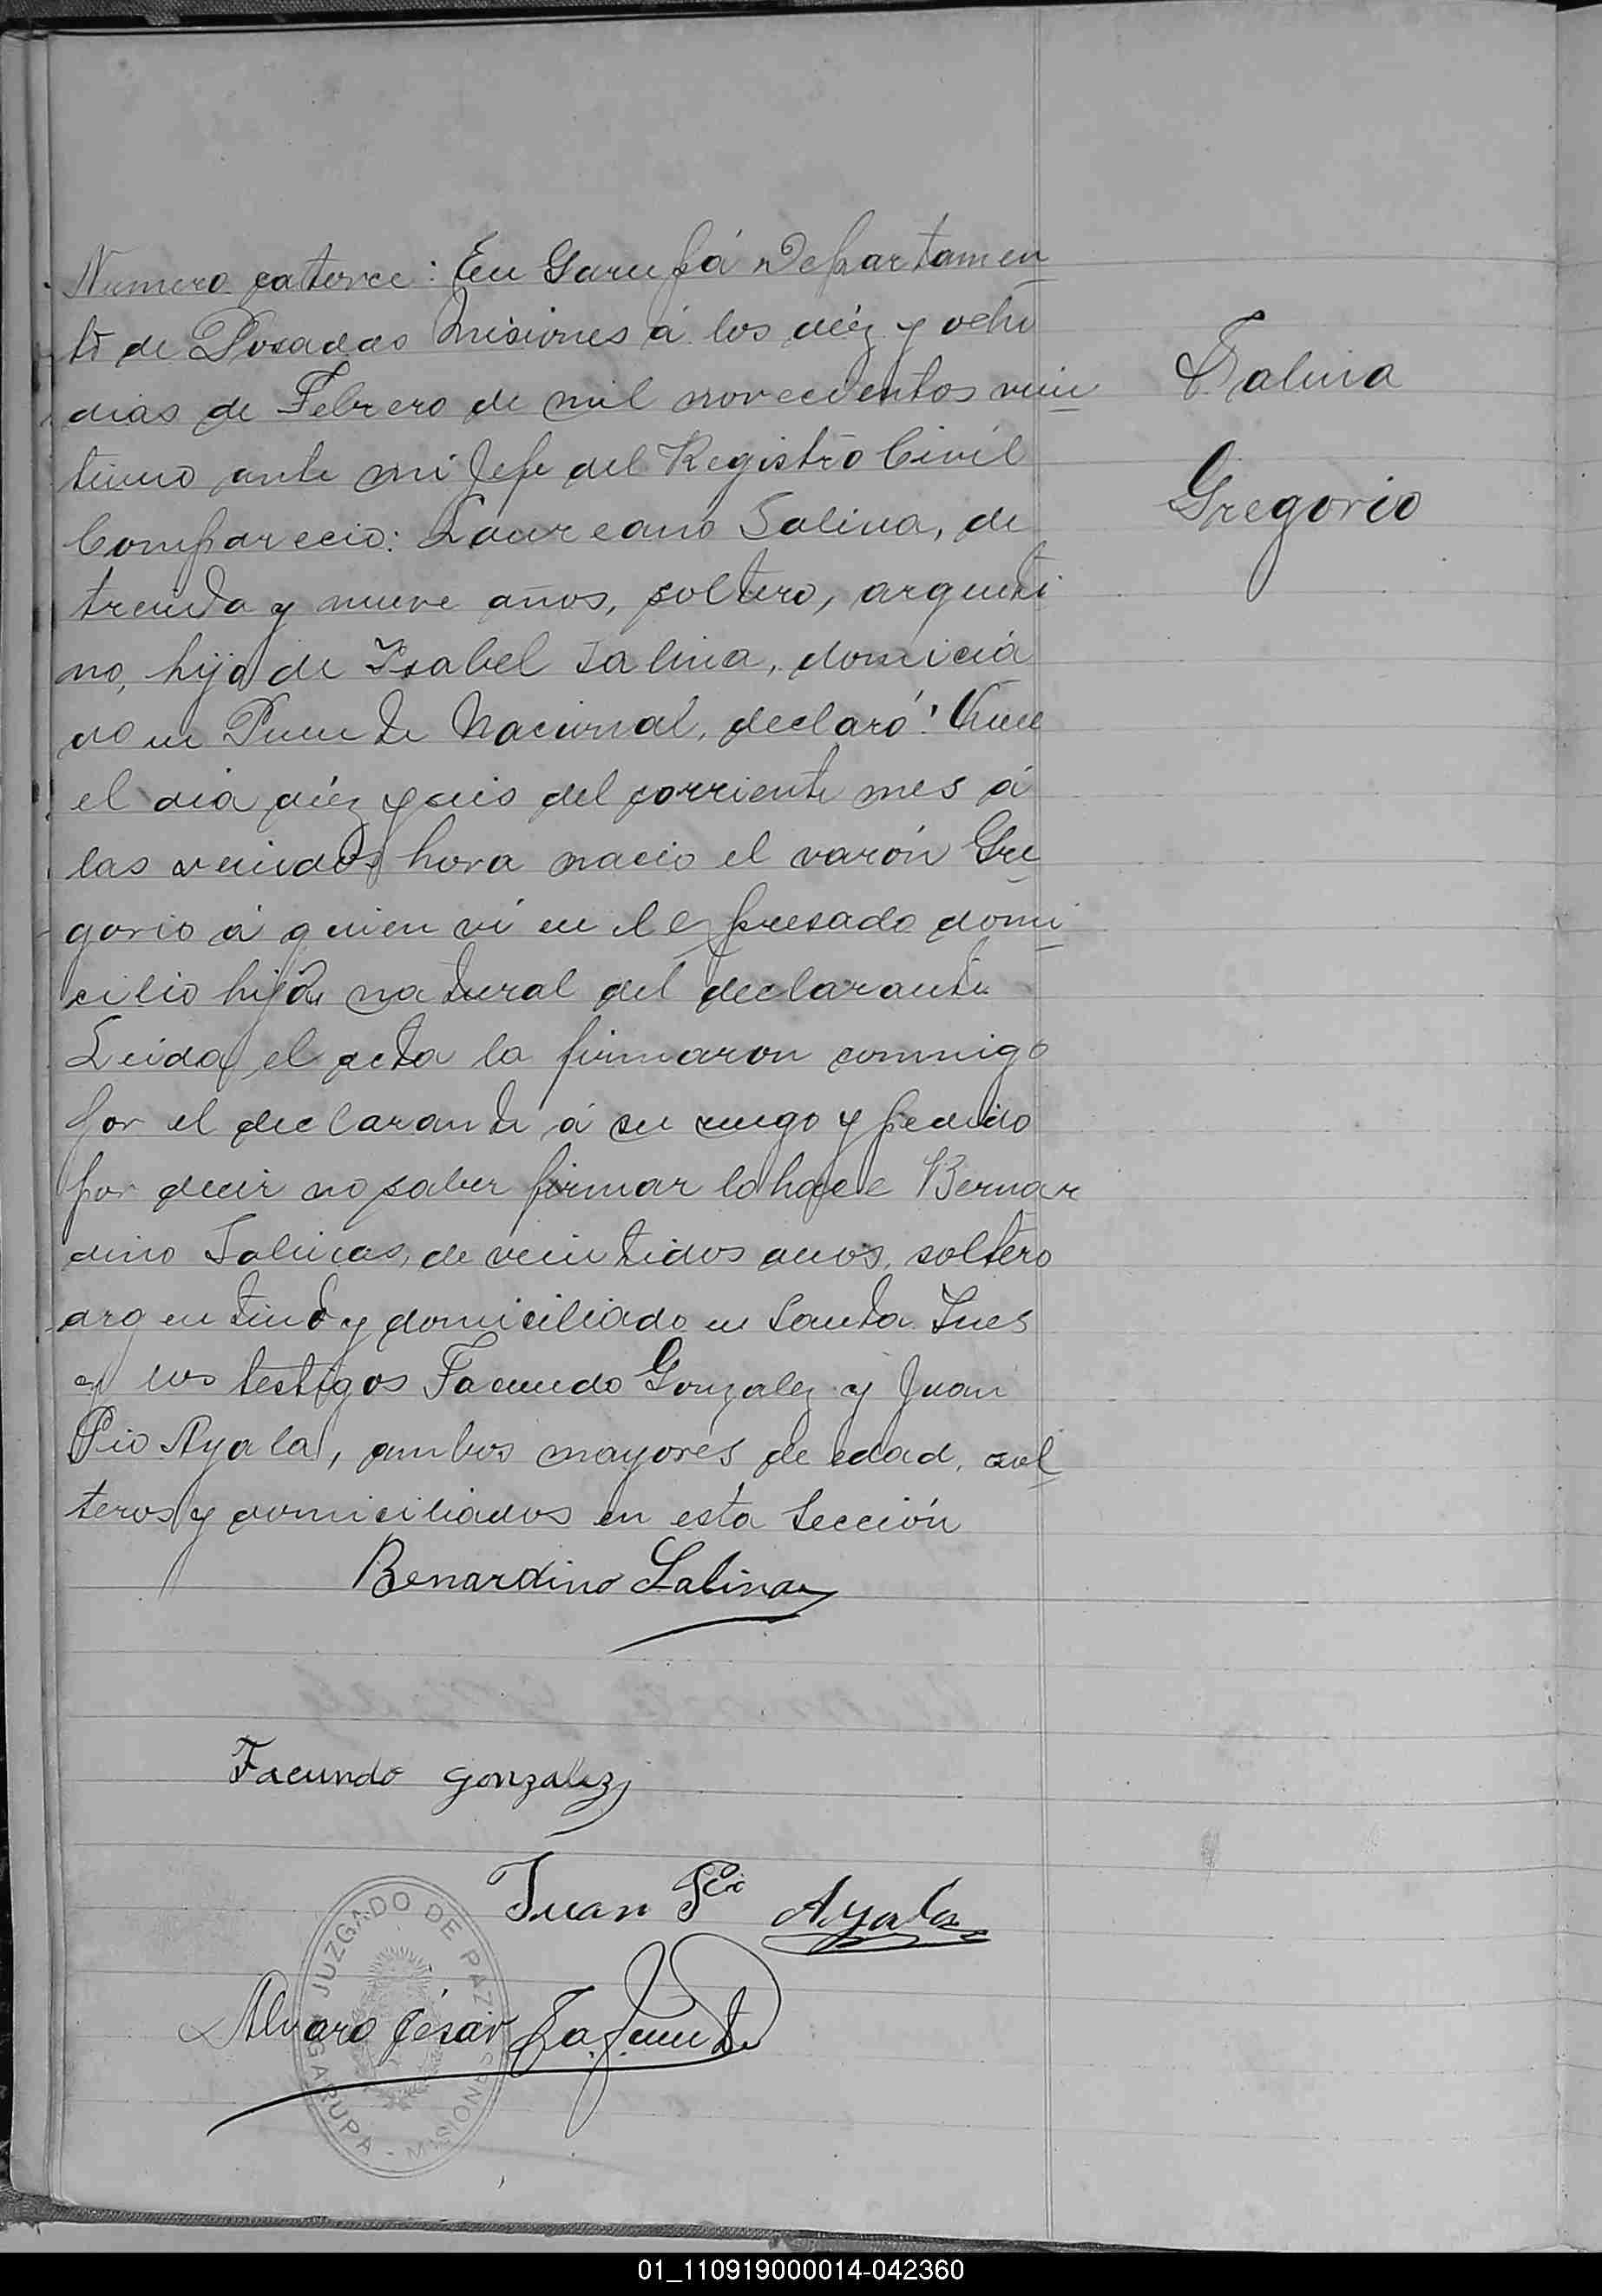 Numero catorce: En Garupá Departamen
to de Posadas Misiones á los diéz y ocho
dias de Febrero de mil novecientos vein
tiuno ante mi Jefe del Registro Civil
Comparecio: Laureano Salina, de
treinta y nueve años, soltero, argenti
no, hijo de Isabel Salina, domicia
do en Puente Nacional, declaró: Que
el dia diéz y seis del corriente mes á
las veindos hora nacio el varón Gre
gorio á quien vi en el expresado domi
cilio hijo natural del declarante
Leida el acta la firmaron conmigo
por el declarante á su ruego y pedido
por decir no saber firmar lo hace Bernar
dino Salinas, de veintidos anos, soltero
argentino y domiciliado en Santa Ines
y los testigos Facundo Gonzalez y Juan
Pio Ayala, ambos mayores de edad, sol
teros y domiciliados en esta Sección
Salina
Gregorio
Benardino Salinas
Facundo Gonzalez
Juan Pio Ayala
Alvaro César Lafuente
JUZGADO DE PAZ
GARUPA - MISIONES
01_110919000014-042360